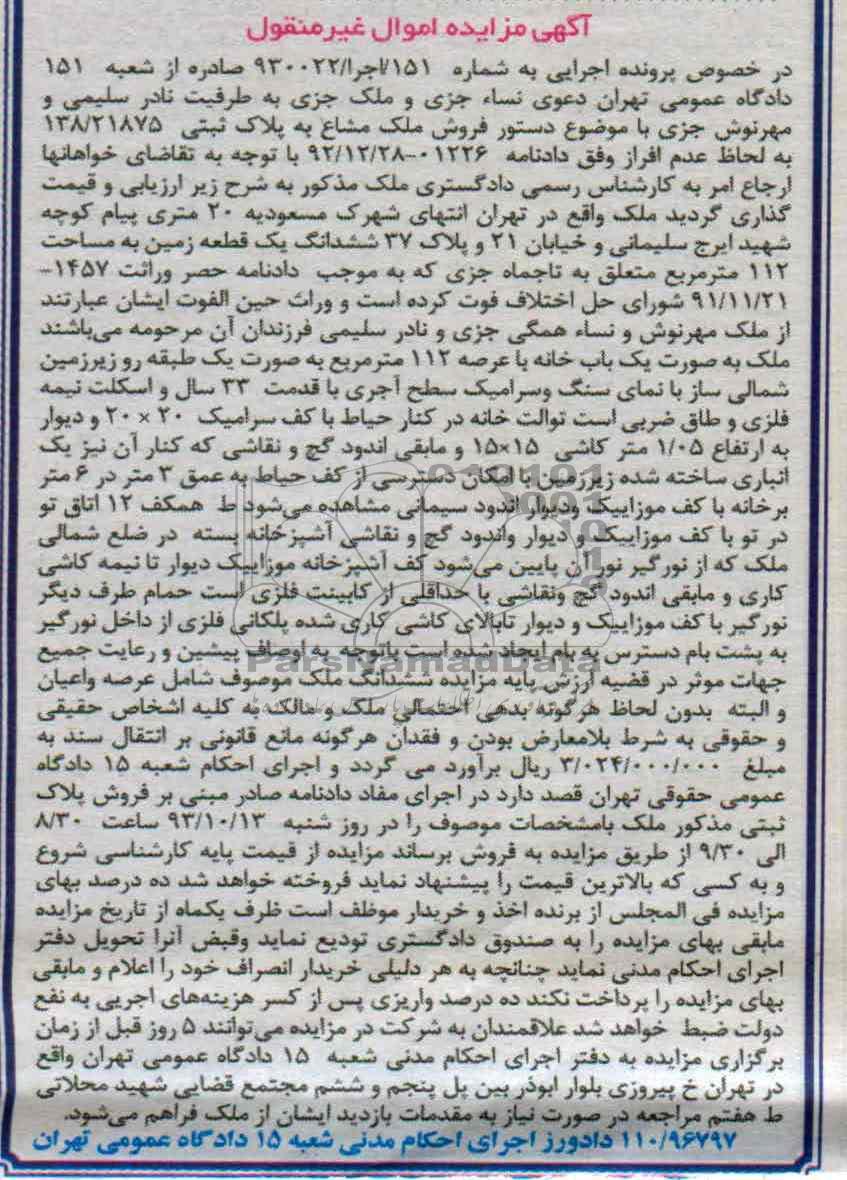 آگهی مزایده اموال غیرمنقول
در خصوص پرونده اجرایی به شماره ۱۵۱/اجرا/۹۳۰۰۲۲ صادره از شعبه ۱۵۱
دادگاه عمومی تهران دعوی نساء جزی و ملک جزی به طرفیت نادر سلیمی و
مهرنوش جزی با موضوع دستور فروش ملک مشاع به پلاک ثبتی ۱۳۸/۲۱۸۷۵
به لحاظ عدم افراز وفق دادنامه ۰۱۲۲۶-۹۲/۱۲/۲۸ با توجه به تقاضای خواهانها
ارجاع امر به کارشناس رسمی دادگستری ملک مذکور به شرح زیر ارزیابی و قیمت
گذاری گردید ملک واقع در تهران انتهای شهرک مسعودیه ۲۰ متری پیام کوچه
شهید ایرج سلیمانی و خیابان ۲۱ و پلاک ۳۷ ششدانگ یک قطعه زمین به مساحت
۱۱۲ مترمربع متعلق به تاجماه جزی که به موجب دادنامه حصر وراثت ۱۴۵۷-
۹۱/۱۱/۲۱ شورای حل اختلاف فوت کرده است و وراث حین الفوت ایشان عبارتند
از ملک مهرنوش و نساء همگی جزی و نادر سلیمی فرزندان آن مرحومه می‌باشند
ملک به صورت یک باب خانه با عرصه ۱۱۲ مترمربع به صورت یک طبقه رو زیرزمین
شمالی ساز با نمای سنگ وسرامیک سطح آجری با قدمت ۳۳ سال و اسکلت نیمه
فلزی و طاق ضربی است توالت خانه در کنار حیاط با کف سرامیک ۲۰ × ۲۰ و دیوار
به ارتفاع ۱/۰۵ متر کاشی ۱۵×۱۵ و مابقی اندود گچ و نقاشی که کنار آن نیز یک
انباری ساخته شده زیرزمین با امکان دسترسی از کف حیاط به عمق ۳ متر در ۶ متر
برخانه با کف موزاییک ودیوار اندود سیمانی مشاهده می‌شود ط همکف ۱۲ اتاق تو
در تو با کف موزاییک و دیوار واندود گچ و نقاشی آشپزخانه بسته در ضلع شمالی
ملک که از نورگیر نور آن پایین می‌شود کف آشپزخانه موزاییک دیوار تا نیمه کاشی
کاری و مابقی اندود گچ ونقاشی با حداقلی از کابینت فلزی است حمام طرف دیگر
نورگیر با کف موزاییک و دیوار تابالای کاشی کاری شده پلکانی فلزی از داخل نورگیر
به پشت بام دسترس به بام ایجاد شده است باتوجه به اوصاف پیشین و رعایت جمیع
جهات موثر در قضیه ارزش پایه مزایده ششدانگ ملک موصوف شامل عرصه واعیان
و البته بدون لحاظ هرگونه بدهی احتمالی ملک و مالک به کلیه اشخاص حقیقی
و حقوقی به شرط بلامعارض بودن و فقدان هرگونه مانع قانونی بر انتقال سند به
مبلغ ۳/۰۲۴/۰۰۰/۰۰۰ ریال برآورد می گردد و اجرای احکام شعبه ۱۵ دادگاه
عمومی حقوقی تهران قصد دارد در اجرای مفاد دادنامه صادر مبنی بر فروش پلاک
ثبتی مذکور ملک بامشخصات موصوف را در روز شنبه ۹۳/۱۰/۱۳ ساعت ۸/۳۰
الی ۹/۳۰ از طریق مزایده به فروش برساند مزایده از قیمت پایه کارشناسی شروع
و به کسی که بالاترین قیمت را پیشنهاد نماید فروخته خواهد شد ده درصد بهای
مزایده فی المجلس از برنده اخذ و خریدار موظف است ظرف یکماه از تاریخ مزایده
مابقی بهای مزایده را به صندوق دادگستری تودیع نماید وقبض آنرا تحویل دفتر
اجرای احکام مدنی نماید چنانچه به هر دلیلی خریدار انصراف خود را اعلام و مابقی
بهای مزایده را پرداخت نکند ده درصد واریزی پس از کسر هزینه‌های اجریی به نفع
دولت ضبط خواهد شد علاقمندان به شرکت در مزایده می‌توانند ۵ روز قبل از زمان
برگزاری مزایده به دفتر اجرای احکام مدنی شعبه ۱۵ دادگاه عمومی تهران واقع
در تهران خ پیروزی بلوار ابوذر بین پل پنجم و ششم مجتمع قضایی شهید محلاتی
ط هفتم مراجعه در صورت نیاز به مقدمات بازدید ایشان از ملک فراهم می‌شود.
۱۱۰/۹۶۷۹۷ دادورز اجرای احکام مدنی شعبه ۱۵ دادگاه عمومی تهران
ParsNamadData